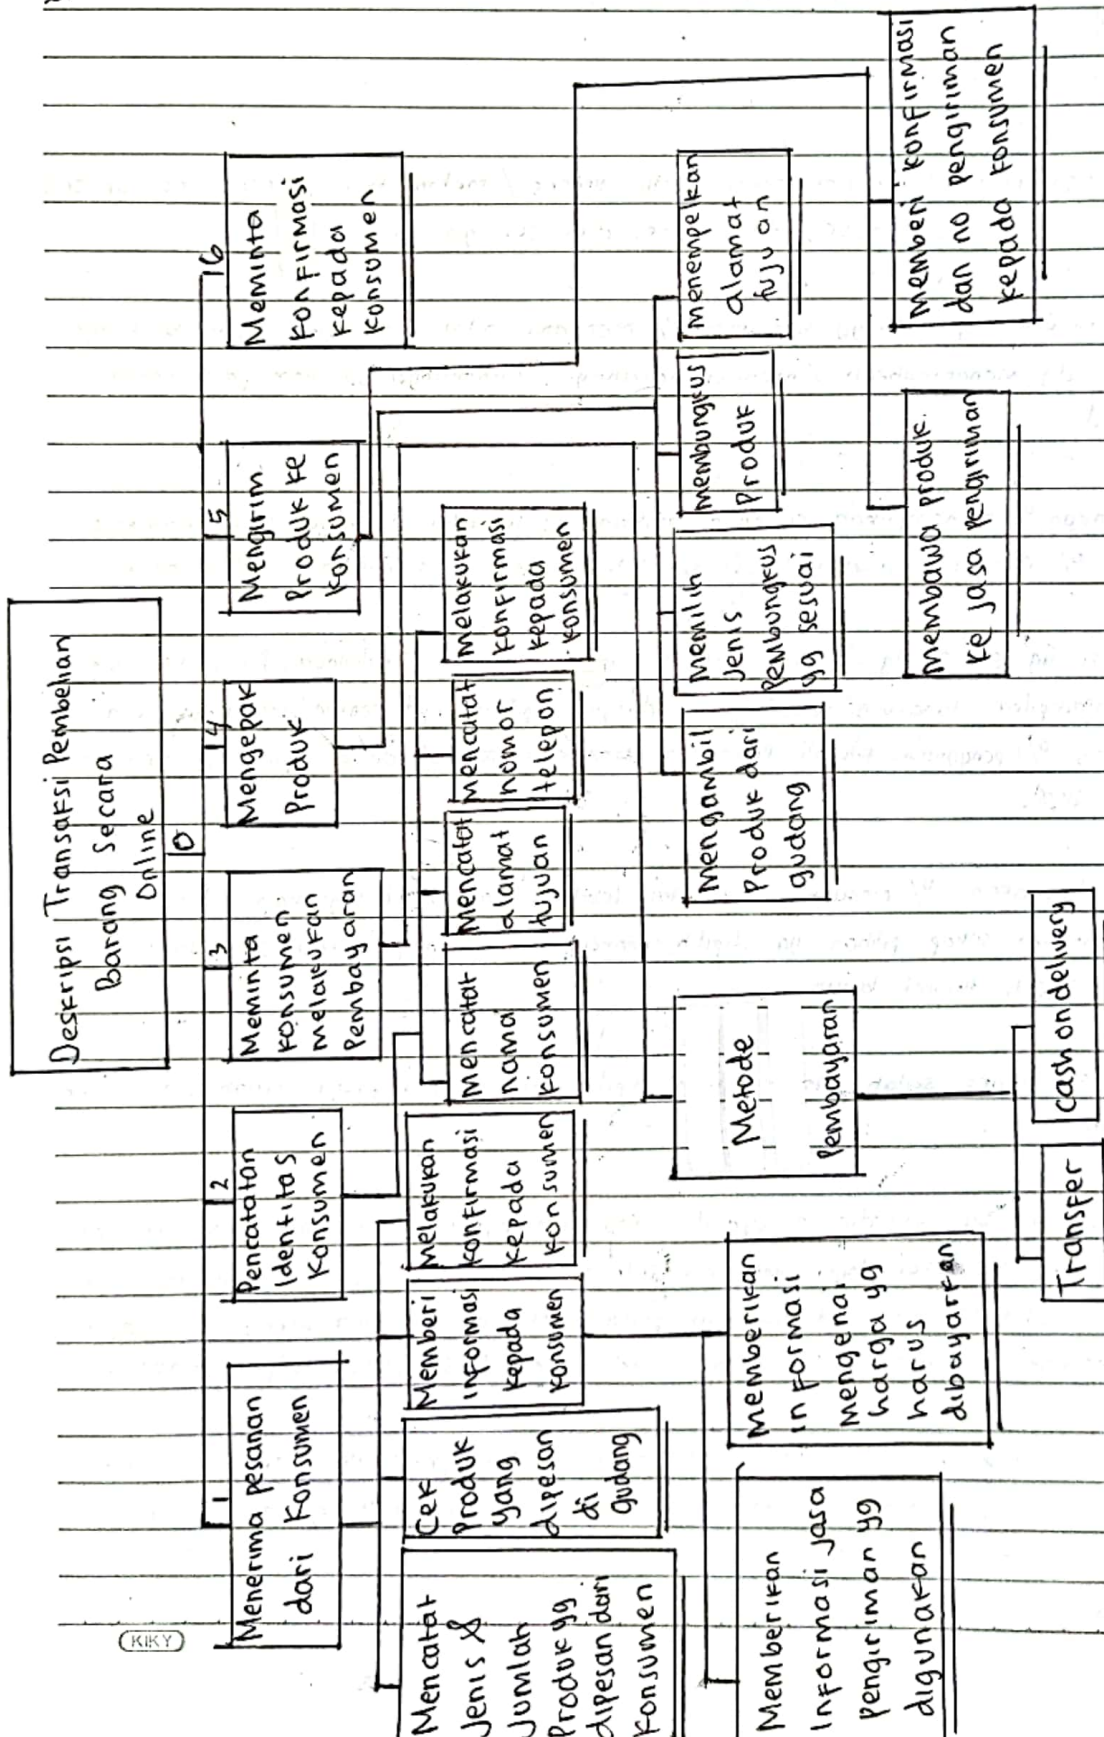 Deskripsi Transaksi Pembelian
Barang Secara
Online
0
1
Menerima pesanan
dari Konsumen
2
Pencatatan
Identitas
Konsumen
3
Meminta
Konsumen
melakukan
Pembayaran
4
Mengepak
Produk
5
Mengirim
Produk ke
Konsumen
6
Meminta
Konfirmasi
kepada
Konsumen
Mencatat
Jenis &
Jumlah
Produk yg
dipesan dari
Konsumen
Cek
Produk
yang
dipesan
di
Gudang
Memberi
informasi
kepada
Konsumen
Melakukan
Konfirmasi
kepada
Konsumen
Mencatat
nama
Konsumen
Mencatat
alamat
tujuan
Mencatat
nomor
telepon
Melakukan
Konfirmasi
kepada
Konsumen
Memberikan
Informasi jasa
Pengiriman yg
digunakan
Memberikan
informasi
mengenai
harga yg
harus
dibayarkan
Metode
Pembayaran
Transfer
cash on delivery
Mengambil
Produk dari
gudang
Memilih
Jenis
Pembungkus
yg sesuai
Membungkus
Produk
Menempelkan
alamat
tujuan
Membawa produk
ke jasa pengiriman
Memberi konfirmasi
dan no pengiriman
kepada Konsumen
KIKY